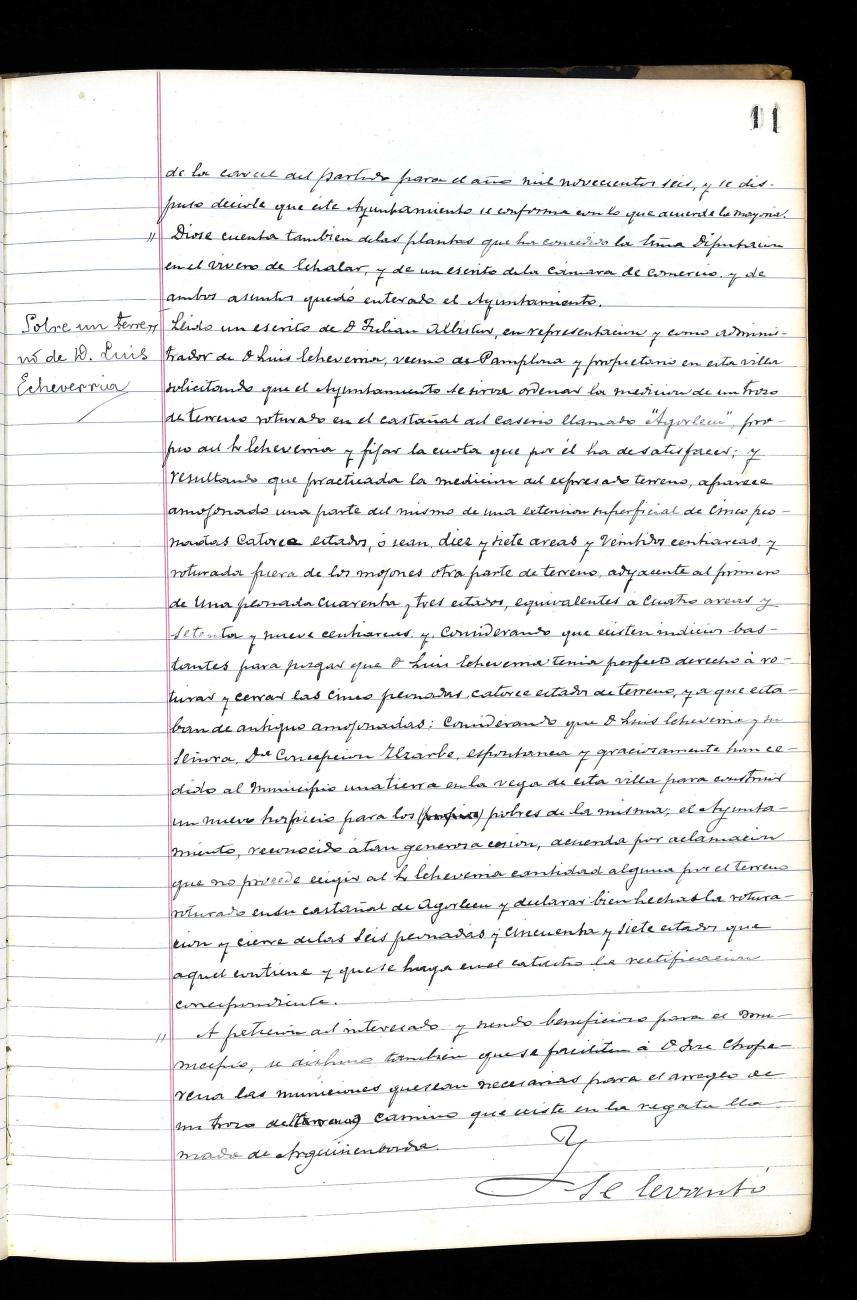 11
de la carcel del partido para el año mil novecientos seis, y se dis-
puso decirle que este Ayuntamiento se conforma con lo que acuerde la mayoria.
" Diose cuenta tambien de las plantas que ha concedido la Ilma Diputacion
en el vivero de Echalar, y de un escrito de la Cámara de Comercio, y de
ambos asuntos quedó enterado el Ayuntamiento.
Sobre un terre
no de D. Luis
Echeverria
" Leido un escrito de D Julian Albistur, en representacion y como adminis-
trador de D Luis Echeverria, vecino de Pamplona y propietario en esta villa
solicitando que el Ayuntamiento se sirva ordenar la medicion de un trozo
de terreno roturado en el castañal del caserio llamado "Agorleeu", pro-
pio del Sr Echeverria y fijar la cuota que por él ha de satisfacer; y
resultando que practicada la medicion del expresado terreno, aparece
amojonado una parte del mismo de una extension superficial de Cinco peo-
nadas Catorce estados, ó sean, diez y siete areas y Veintidos centiareas, y
roturada fuera de los mojones otra parte de terreno, adyacente al primero
de Una peonada Cuarenta y tres estados, equivalentes a Cuatro areas y
setenta y nueve centiareas, y, Considerando que existen indicios bas-
tantes para juzgar que D Luis Echeverria tenia perfecto derecho á ro-
turar y cerrar las Cinco peonadas, catorce estados de terreno, ya que esta-
ban de antiguo amojonadas: Considerando que D Luis Echeverria y su
Señora, Da Concepcion Elzarbe, espontanea y graciosamente han ce-
dido al Municipio una tierra en la vega de esta villa para construir
un nuevo hospicio para los pobres de la misma; el Ayunta-
miento, reconocido á tan generosa cesion, acuerda por aclamacion
que no procede exigir al Sr Echeverria cantidad alguna por el terreno
roturado en su castañal de Agorleeu y declarar bien hechas la rotura-
cion y cierre de las Seis peonadas y Cincuenta y siete estados que
aquel contiene y que se haga en el catastro la rectificacion
correspondiente.
" A peticion del interesado y siendo beneficioso para el Mu-
nicipio, se dispuso tambien que se faciliten á D Jose Chope-
rena las municiones que sean necesarias para el arreglo de
un trozo de (terreno) camino que existe en la regata lla
mada de Arguinenborda.
Y
se levantó